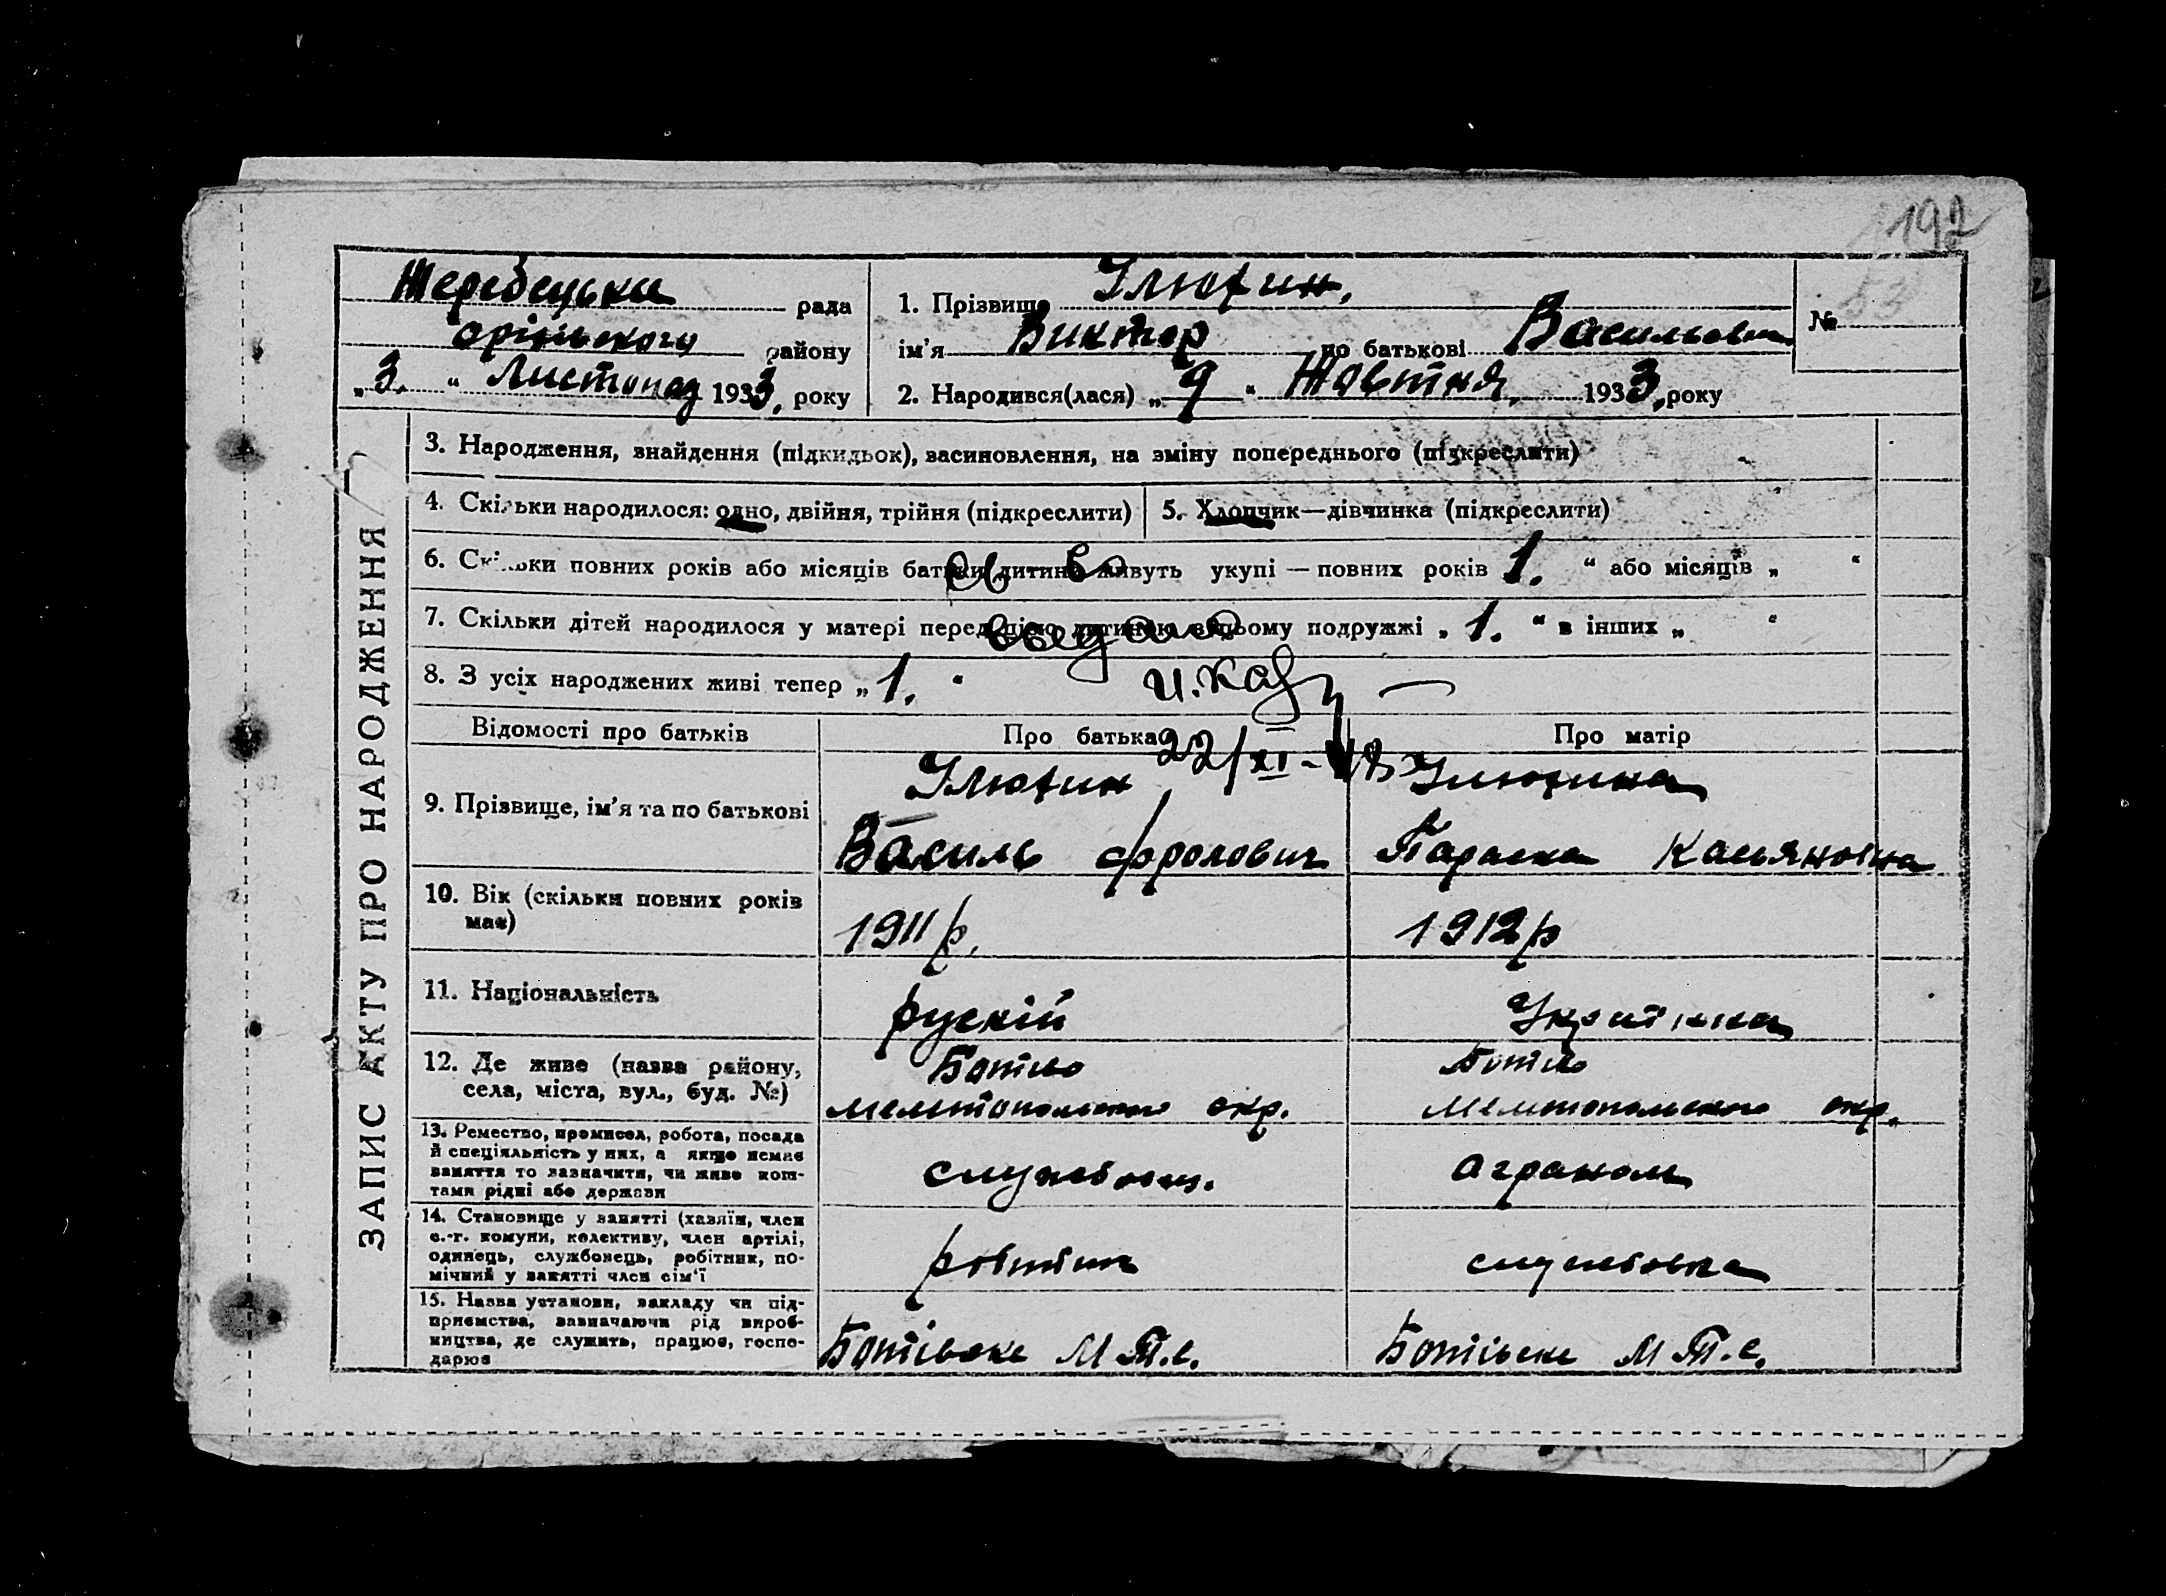 192
Жеребецька рада
оріхівського району
„ 3. “ Листопад 1933, року
1. Прізвище Ілюхин,
ім'я Виктор по батькові Васильович
2. Народився(лася) „ 9 “ Жовтня, 1933, року
№ 53
ЗАПИС АКТУ ПРО НАРОДЖЕННЯ
3. Народження, знайдення (підкидьок), васиновлення, на зміну попереднього (підкреслити)
4. Скільки народилося: одно, двійня, трійня (підкреслити)
5. Хлопчик—дівчинка (підкреслити)
6. Скільки повних років або місяців батьки дитини живуть укупі — повних років 1. “ або місяців „ “
св-во
7. Скільки дітей народилося у матері перед цією дитиною в цьому подружжі „ 1. “ в інших „ “
выдано
8. З усіх народжених живі тепер „ 1. “
22/XI-48
Відомості про батьків
Про батька
Про матір
9. Прізвище, ім'я та по батькові
Ілюхин
Василь Фролович
Ілюхина
Параска Касьяновна
10. Вік (скільки повних років має)
1911 р.
1912 р
11. Національність
рускій
Українка
12. Де живе (назва району,
села, міста, вул., буд. №)
Ботієво
Мелитопольського окр.
Ботієво
Мелитопольского окр.
13. Ремество, промисел, робота, посада
й спеціяльність у них, а якщо немає
заняття то зазначити, чи живе кош-
тами рідні або держави
службовец.
аграном
14. Становище у занятті (хазяїн, член
с.-г. комуни, колективу, член артілі,
одинець, службовець, робітник, по-
мічний у занятті член сім'ї
робітник
службовка
15. Назва установи, закладу чи під-
приємства, зазначаючи рід вироб-
ництва, де служить, працює, госпо-
дарює
Ботієвске М.Т.С.
Ботієвске М.Т.С.